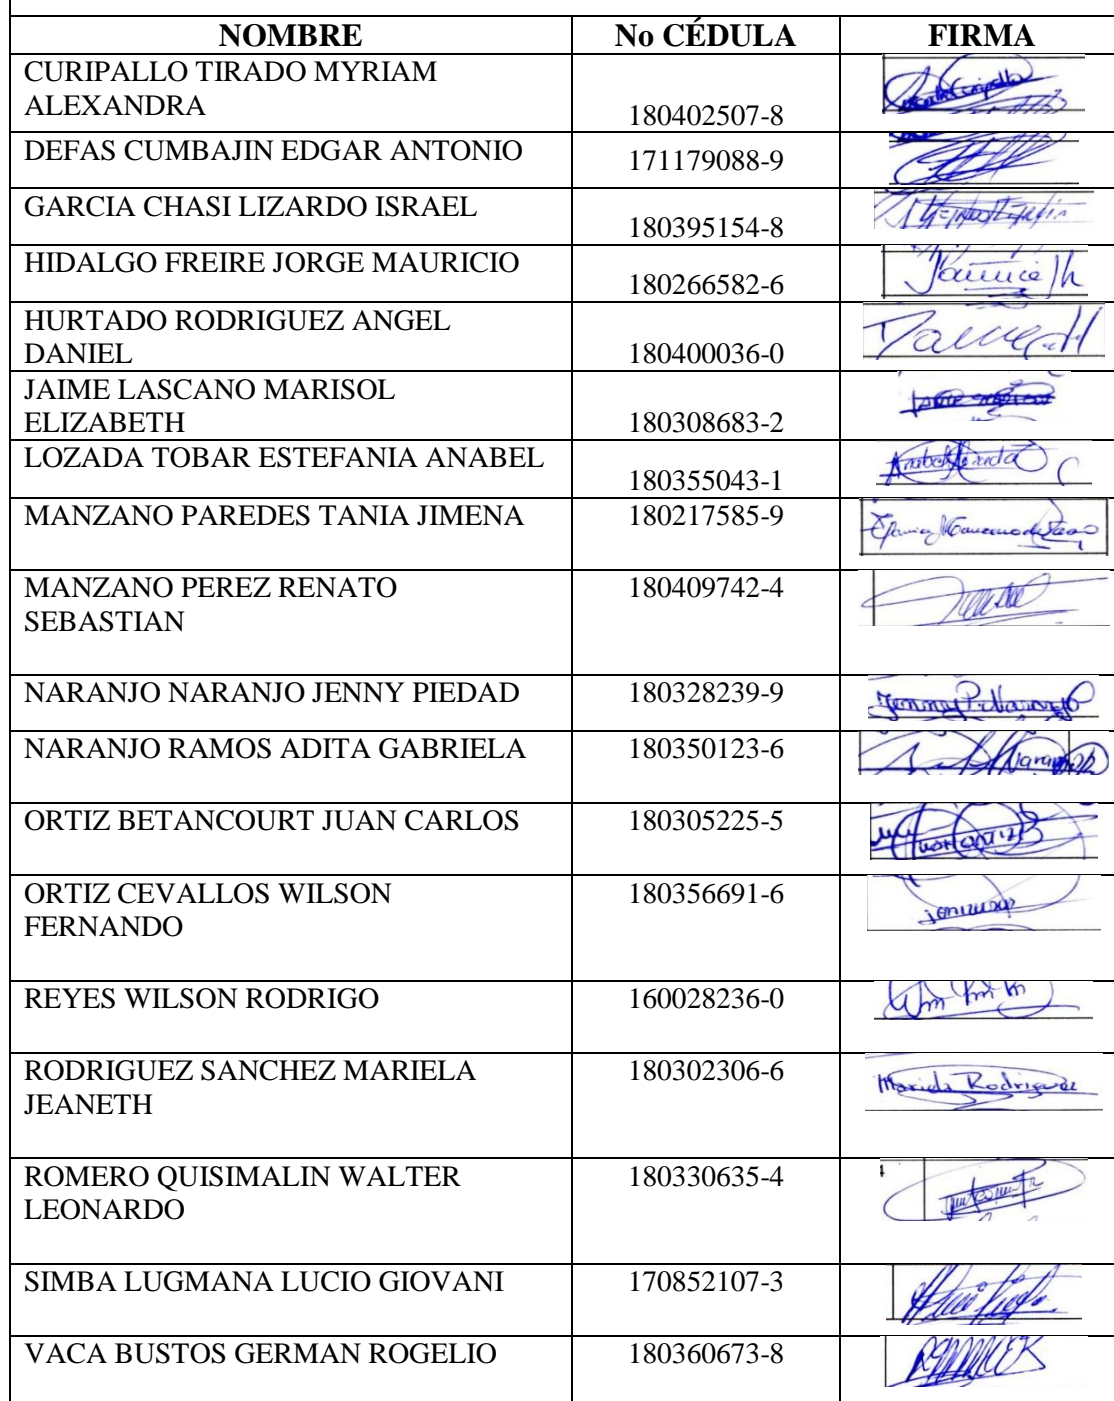 NOMBRE No CÉDULA FIRMA
CURIPALLO TIRADO MYRIAM
ALEXANDRA 180402507-8
DEFAS CUMBAJIN EDGAR ANTONIO 171179088-9
GARCIA CHASI LIZARDO ISRAEL 180395154-8
HIDALGO FREIRE JORGE MAURICIO 180266582-6
HURTADO RODRIGUEZ ANGEL
DANIEL 180400036-0
JAIME LASCANO MARISOL
ELIZABETH 180308683-2
LOZADA TOBAR ESTEFANIA ANABEL 180355043-1
MANZANO PAREDES TANIA JIMENA 180217585-9
MANZANO PEREZ RENATO 180409742-4
SEBASTIAN
NARANJO NARANJO JENNY PIEDAD 180328239-9
NARANJO RAMOS ADITA GABRIELA 180350123-6
ORTIZ BETANCOURT JUAN CARLOS 180305225-5
ORTIZ CEVALLOS WILSON 180356691-6
FERNANDO
REYES WILSON RODRIGO 160028236-0
RODRIGUEZ SANCHEZ MARIELA 180302306-6 Mariela Rodriguez
JEANETH
ROMERO QUISIMALIN WALTER 180330635-4
LEONARDO
SIMBA LUGMANA LUCIO GIOVANI 170852107-3
VACA BUSTOS GERMAN ROGELIO 180360673-8